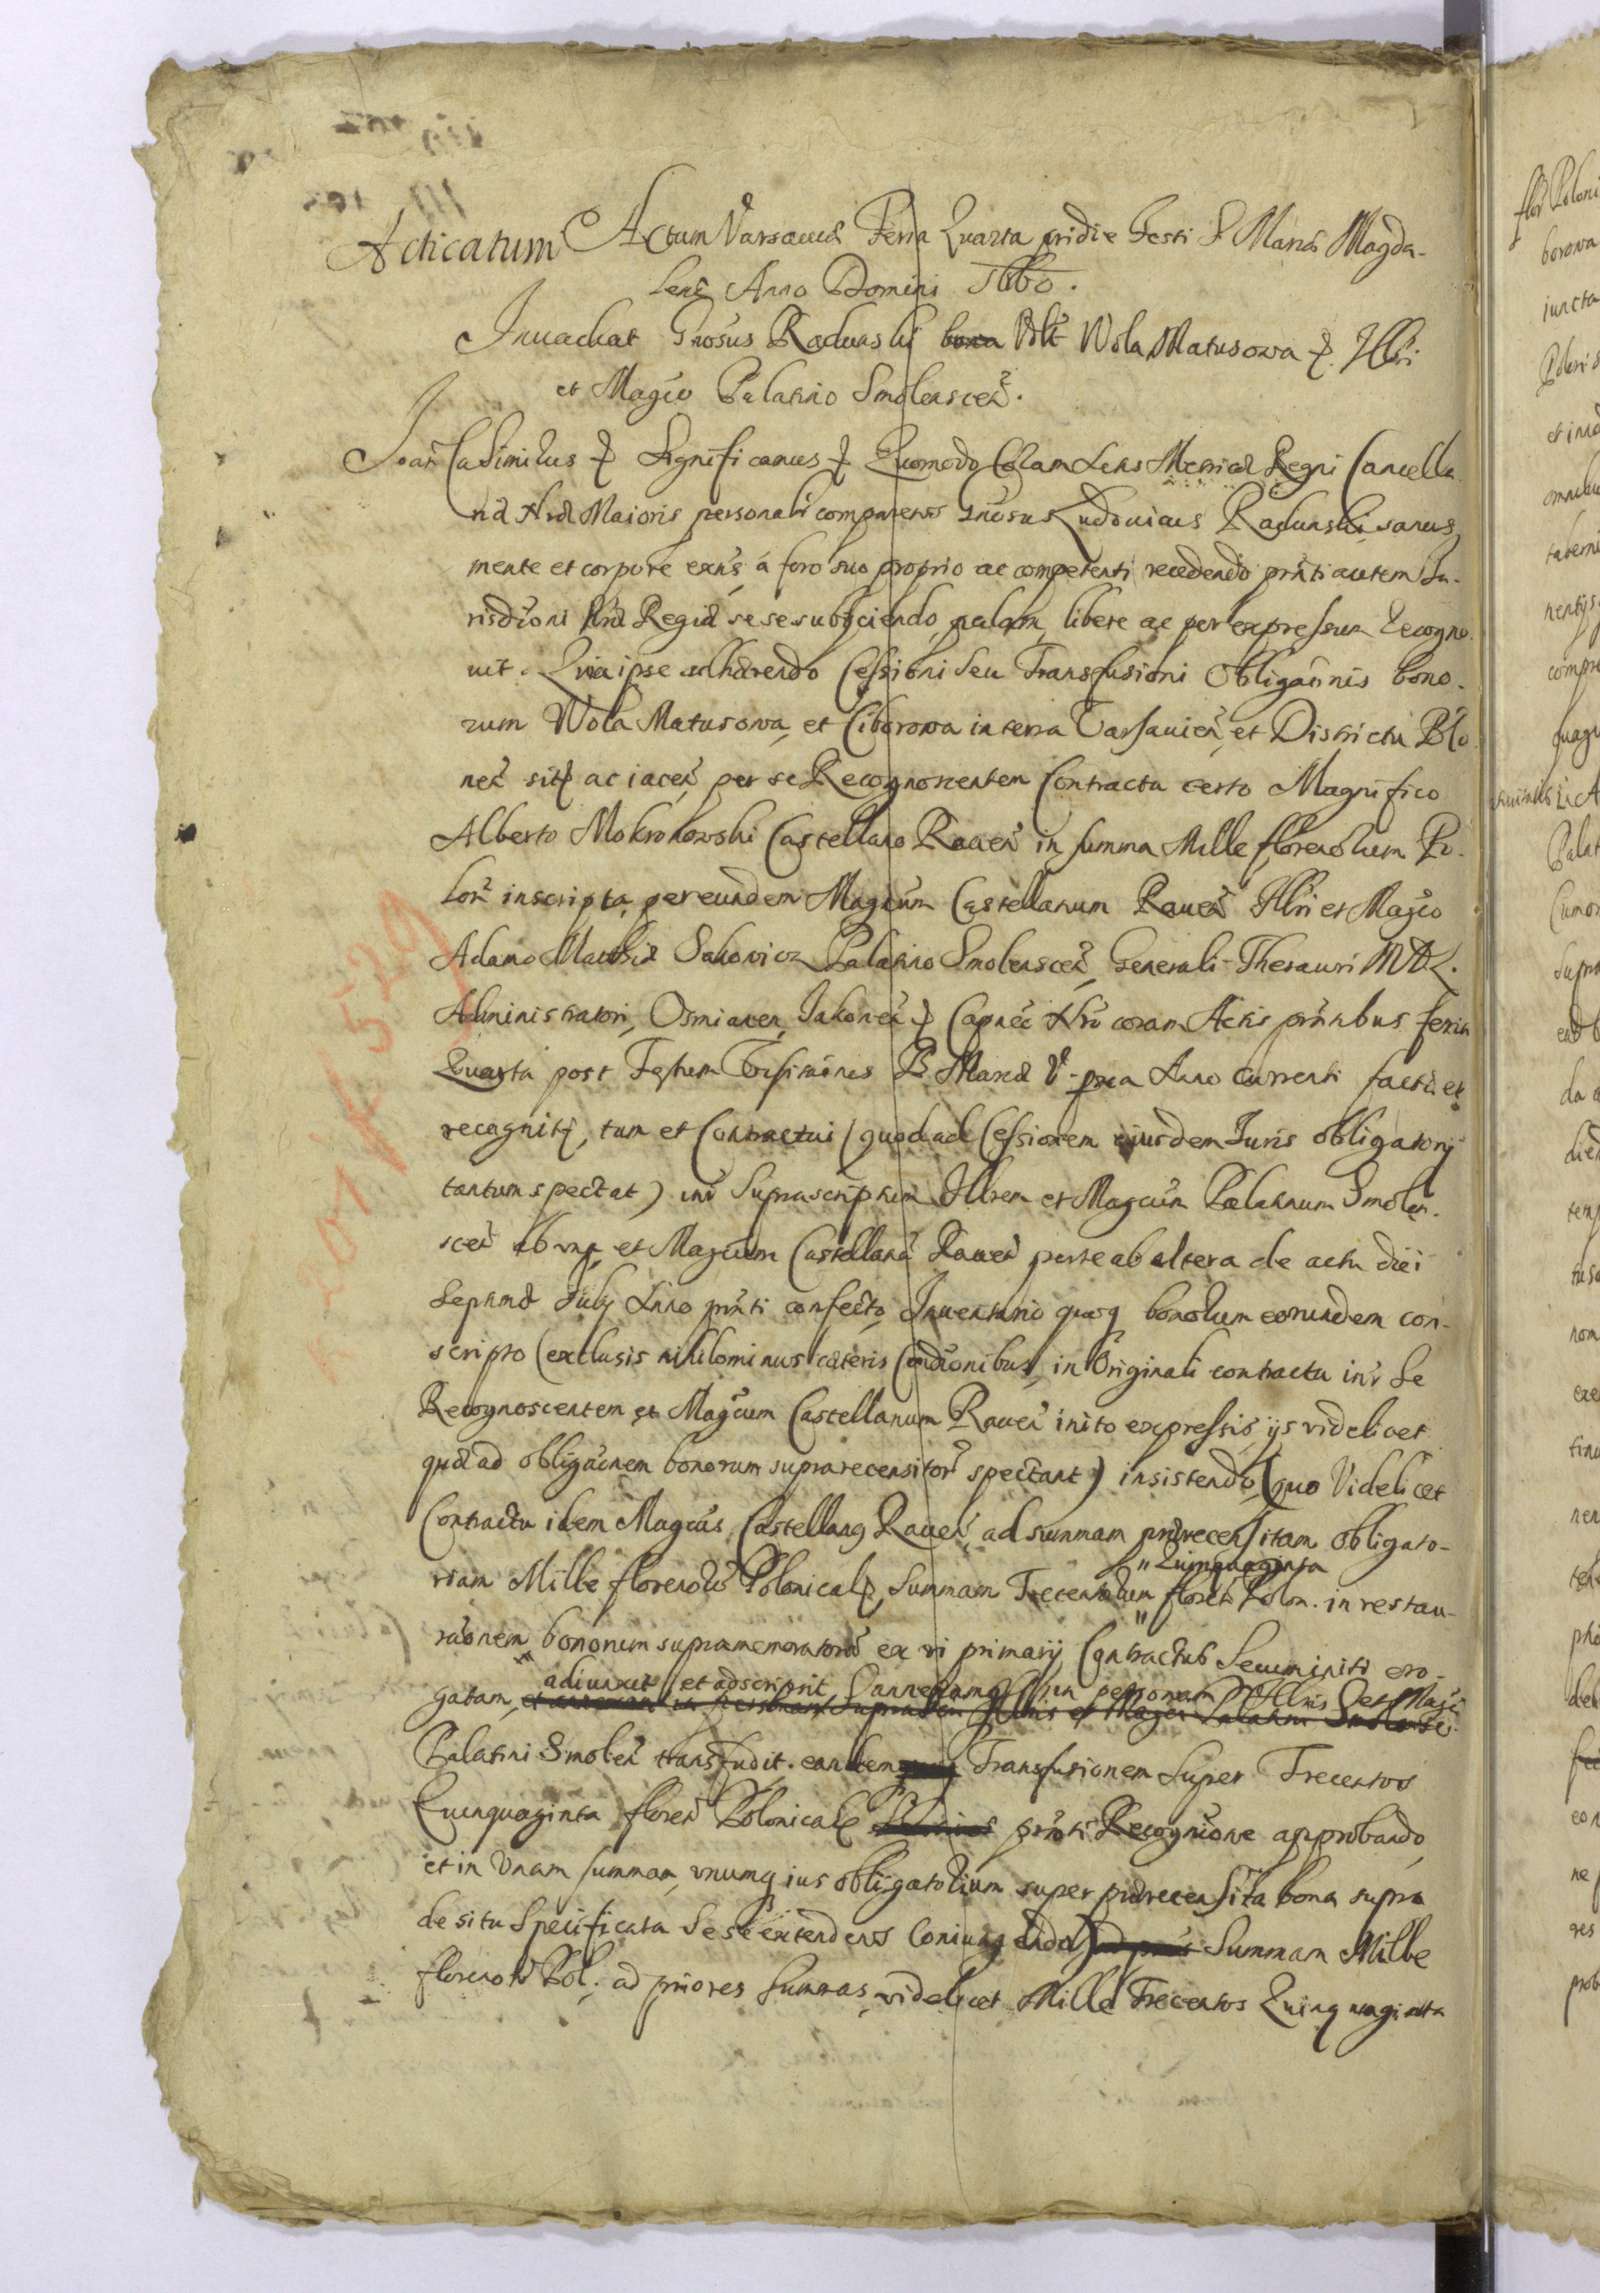 Acticatum Actum Varsaviæ Feria Quarta pridie Festi S Mariæ Magda-
lenæ Anno Domini 1660.
Invadiat Gnosus Radunski bona Vill Wola Matusowa & Illri
et Magco Palatino Smolenscen̄.
Joan Casimirus & Significamus & Quomodo Coram Actis Metrices Regni Cancella
riæ Nræ Maioris personalr̄ comparens Gnosus Ludovicus Radunski sanus
mente et corpore exn̄s, á foro suo proprio ac competenti recedendo prn̄ti autem Ju-
risdōni Nræ Regiæ sese subijciendo, palam, libere ac per expressum recogno-
vit. Quia ipse adhærendo Cessioni seu Transfusioni Obligaōnis bono-
rum Wola Matusowa, et Ciborowa in terra Varsavien̄, et Districtu Blo-
nen̄ sitt̄ ac iacen̄, per se Recognoscentem Contractu certo Magnifico
Alberto Mokronowski Castellano Raven̄ in summa Mille florenorum Po-
lon̄ inscripta, per eundem Magcum Castellanum Raven̄ Illri et Magco
Adamo Matthiæ Sakowicz Palatino Smolenscen̄, Generali Thesauri MDL.
Administratori, Osmianen, Jakonen̄ & Capneo Nro coram Actis prn̄tibus feria
Quarta post Festum Visitaōnis B. Mariæ V. prꝏa Anno Currenti facti et
recogniti, tum et Contractui (quod ad Cessionem eiusdem Juris obligatorij
tantum spectat) intr Suprascriptum Illrem et Magcum Palatinum Smolen-
scen̄ ab una, et Magcum Castellanū Raven̄ parte ab altera de actu diei
Septimæ July Anno prn̄ti confecto, Inventario quoq bonorum eorundem con-
scripto (exclusis nihilominus cæteris Condōnibus, in Originali contractu intr se
Recognoscentem et Magcum Castellanum Raven̄ inito expressis, ijs videlicet
quæ ad obligaōnem bonorum suprarecensitor̄ spectant) insistendo, (quo Videlicet
Contractu idem Magcus Castellanq Raven̄, ad summam prærecensitam obligato-
" Quinquaginta
riam Mille florenorū Polonicalt, Summam Trecentorum " floren Polon. in restau-
raōnem bonorum supramemoratorū ex vi primarij Contractus Secum initi ero-
adiunxit et adscripsit, annexamq in personam Illris et Magci
gatam, et annexam in personam supradcti Illris et Magci Palatini Smolensc
Palatini Smolen̄ transfudit. eandem Transfusionem super Trecentos
Quinquaginta floren̄ Polonicalt prn̄ti Recognitione approbando,
et in Unam summam, unumq ius obligatorium super prærecensita bona supra
de situ Specificata sese extendens Coniungendo) Summam Mille
florenorū Pol. ad priores Summas, videlicet Mille Trecentos Quinquaginta